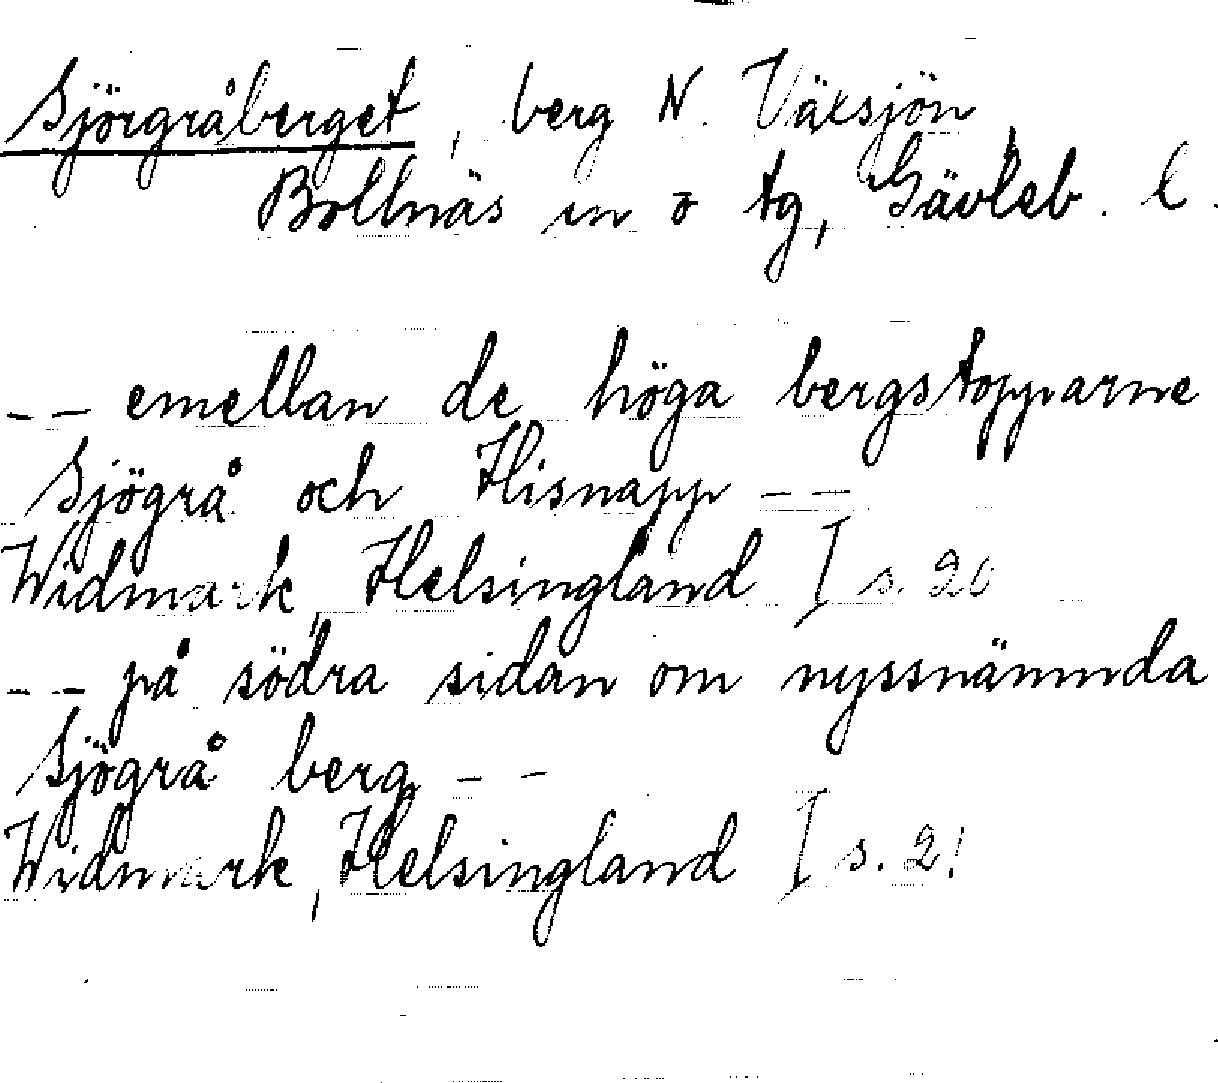 Sjörgråberget, berg N. Växsjön,
Bollnäs sn o tg, Gävleb. l.
-- emellan de höga bergstopparne
Sjögrå och Hisnapp --
Widmark, Helsingland I s. 20
-- på södra sidan om nyssnämnda
Sjögrå berg --
Widmark, Helsingland I s. 21